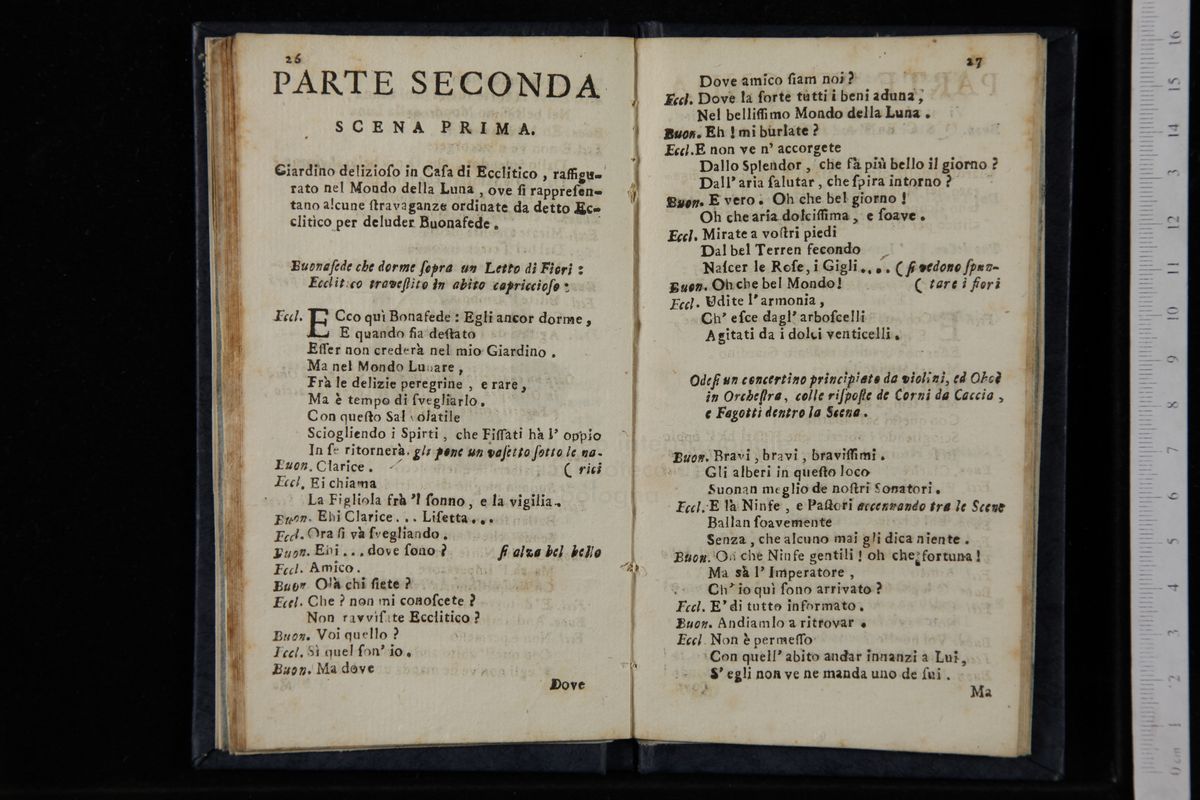 26
PARTE SECONDA
SCENA PRIMA.
Giardino delizioſo in Caſa di Ecclitico, raffigu-
rato nel Mondo della Luna, ove ſi rappreſen-
tano alcune ſtravaganze ordinate da detto Ec-
clitico per deluder Buonafede.
Buonafede che dorme ſopra un Letto di Fiori:
Ecclitico traveſtito in abito capriccioſo:
Eccl. ECco quì Bonafede: Egli ancor dorme,
E quando ſia deſtato
Eſſer non crederà nel mio Giardino.
Ma nel Mondo Lunare,
Frà le delizie peregrine, e rare,
Ma è tempo di ſvegliarlo.
Con queſto Sal volatile
Sciogliendo i Spirti, che Fiſſati hà l' oppio
In ſe ritornerà. gli pone un vaſetto ſotto le na-
Buon. Clarice. ( rici
Eccl. Ei chiama
La Figliola frà 'l ſonno, e la vigilia.
Buon. Ehi Clarice... Liſetta...
Eccl. Ora ſi và ſvegliando.
Buon. Ehi... dove ſono? ſi alza bel bello
Eccl. Amico.
Buon Olà chi ſiete?
Eccl. Che? non mi conoſcete?
Non ravviſate Ecclitico?
Buon. Voi quello?
Eccl. Sì quel ſon' io.
Buon. Ma dove
Dove
27
Dove amico ſiam noi?
Eccl. Dove la ſorte tutti i beni aduna,
Nel belliſſimo Mondo della Luna.
Buon. Eh! mi burlate?
Eccl. E non ve n' accorgete
Dallo Splendor, che fà più bello il giorno?
Dall' aria ſalutar, che ſpira intorno?
Buon. E vero. Oh che bel giorno!
Oh che aria dolciſſima, e ſoave.
Eccl. Mirate a voſtri piedi
Dal bel Terren fecondo
Naſcer le Roſe, i Gigli.... ( ſi vedono ſpun-
Buon. Oh che bel Mondo! ( tare i fiori
Eccl. Udite l' armonia,
Ch' eſce dagl' arboſcelli
Agitati da i dolci venticelli.
Odeſi un concertino principiato da violini, ed Oboè
in Orcheſtra, colle riſpoſte de Corni da Caccia,
e Fagotti dentro la Scena.
Buon. Bravi, bravi, braviſſimi.
Gli alberi in queſto loco
Suonan meglio de noſtri Sonatori.
Eccl. E là Ninfe, e Paſtori accennando tra le Scene
Ballan ſoavemente
Senza, che alcuno mai gli dica niente.
Buon. Oh che Ninfe gentili! oh che fortuna!
Ma sà l' Imperatore,
Ch' io quì ſono arrivato?
Eccl. E' di tutto informato.
Buon. Andiamlo a ritrovar.
Eccl Non è permeſſo
Con quell' abito andar innanzi a Lui,
S' egli non ve ne manda uno de ſui.
Ma